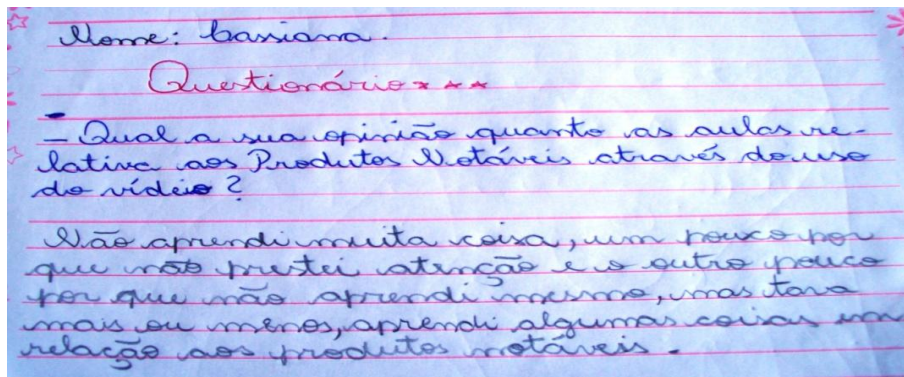 Nome: Cassiana.
Questionário ***
- Qual a sua opinião quanto as aulas re-
lativa aos Produtos Notáveis através do uso
do vídeio ?
Não aprendi muita coisa, um pouco por
que não prestei atenção e o outro pouco
por que não aprendi mesmo, mas tava
mais ou menos, aprendi algumas coisas em
relação aos produtos notáveis.